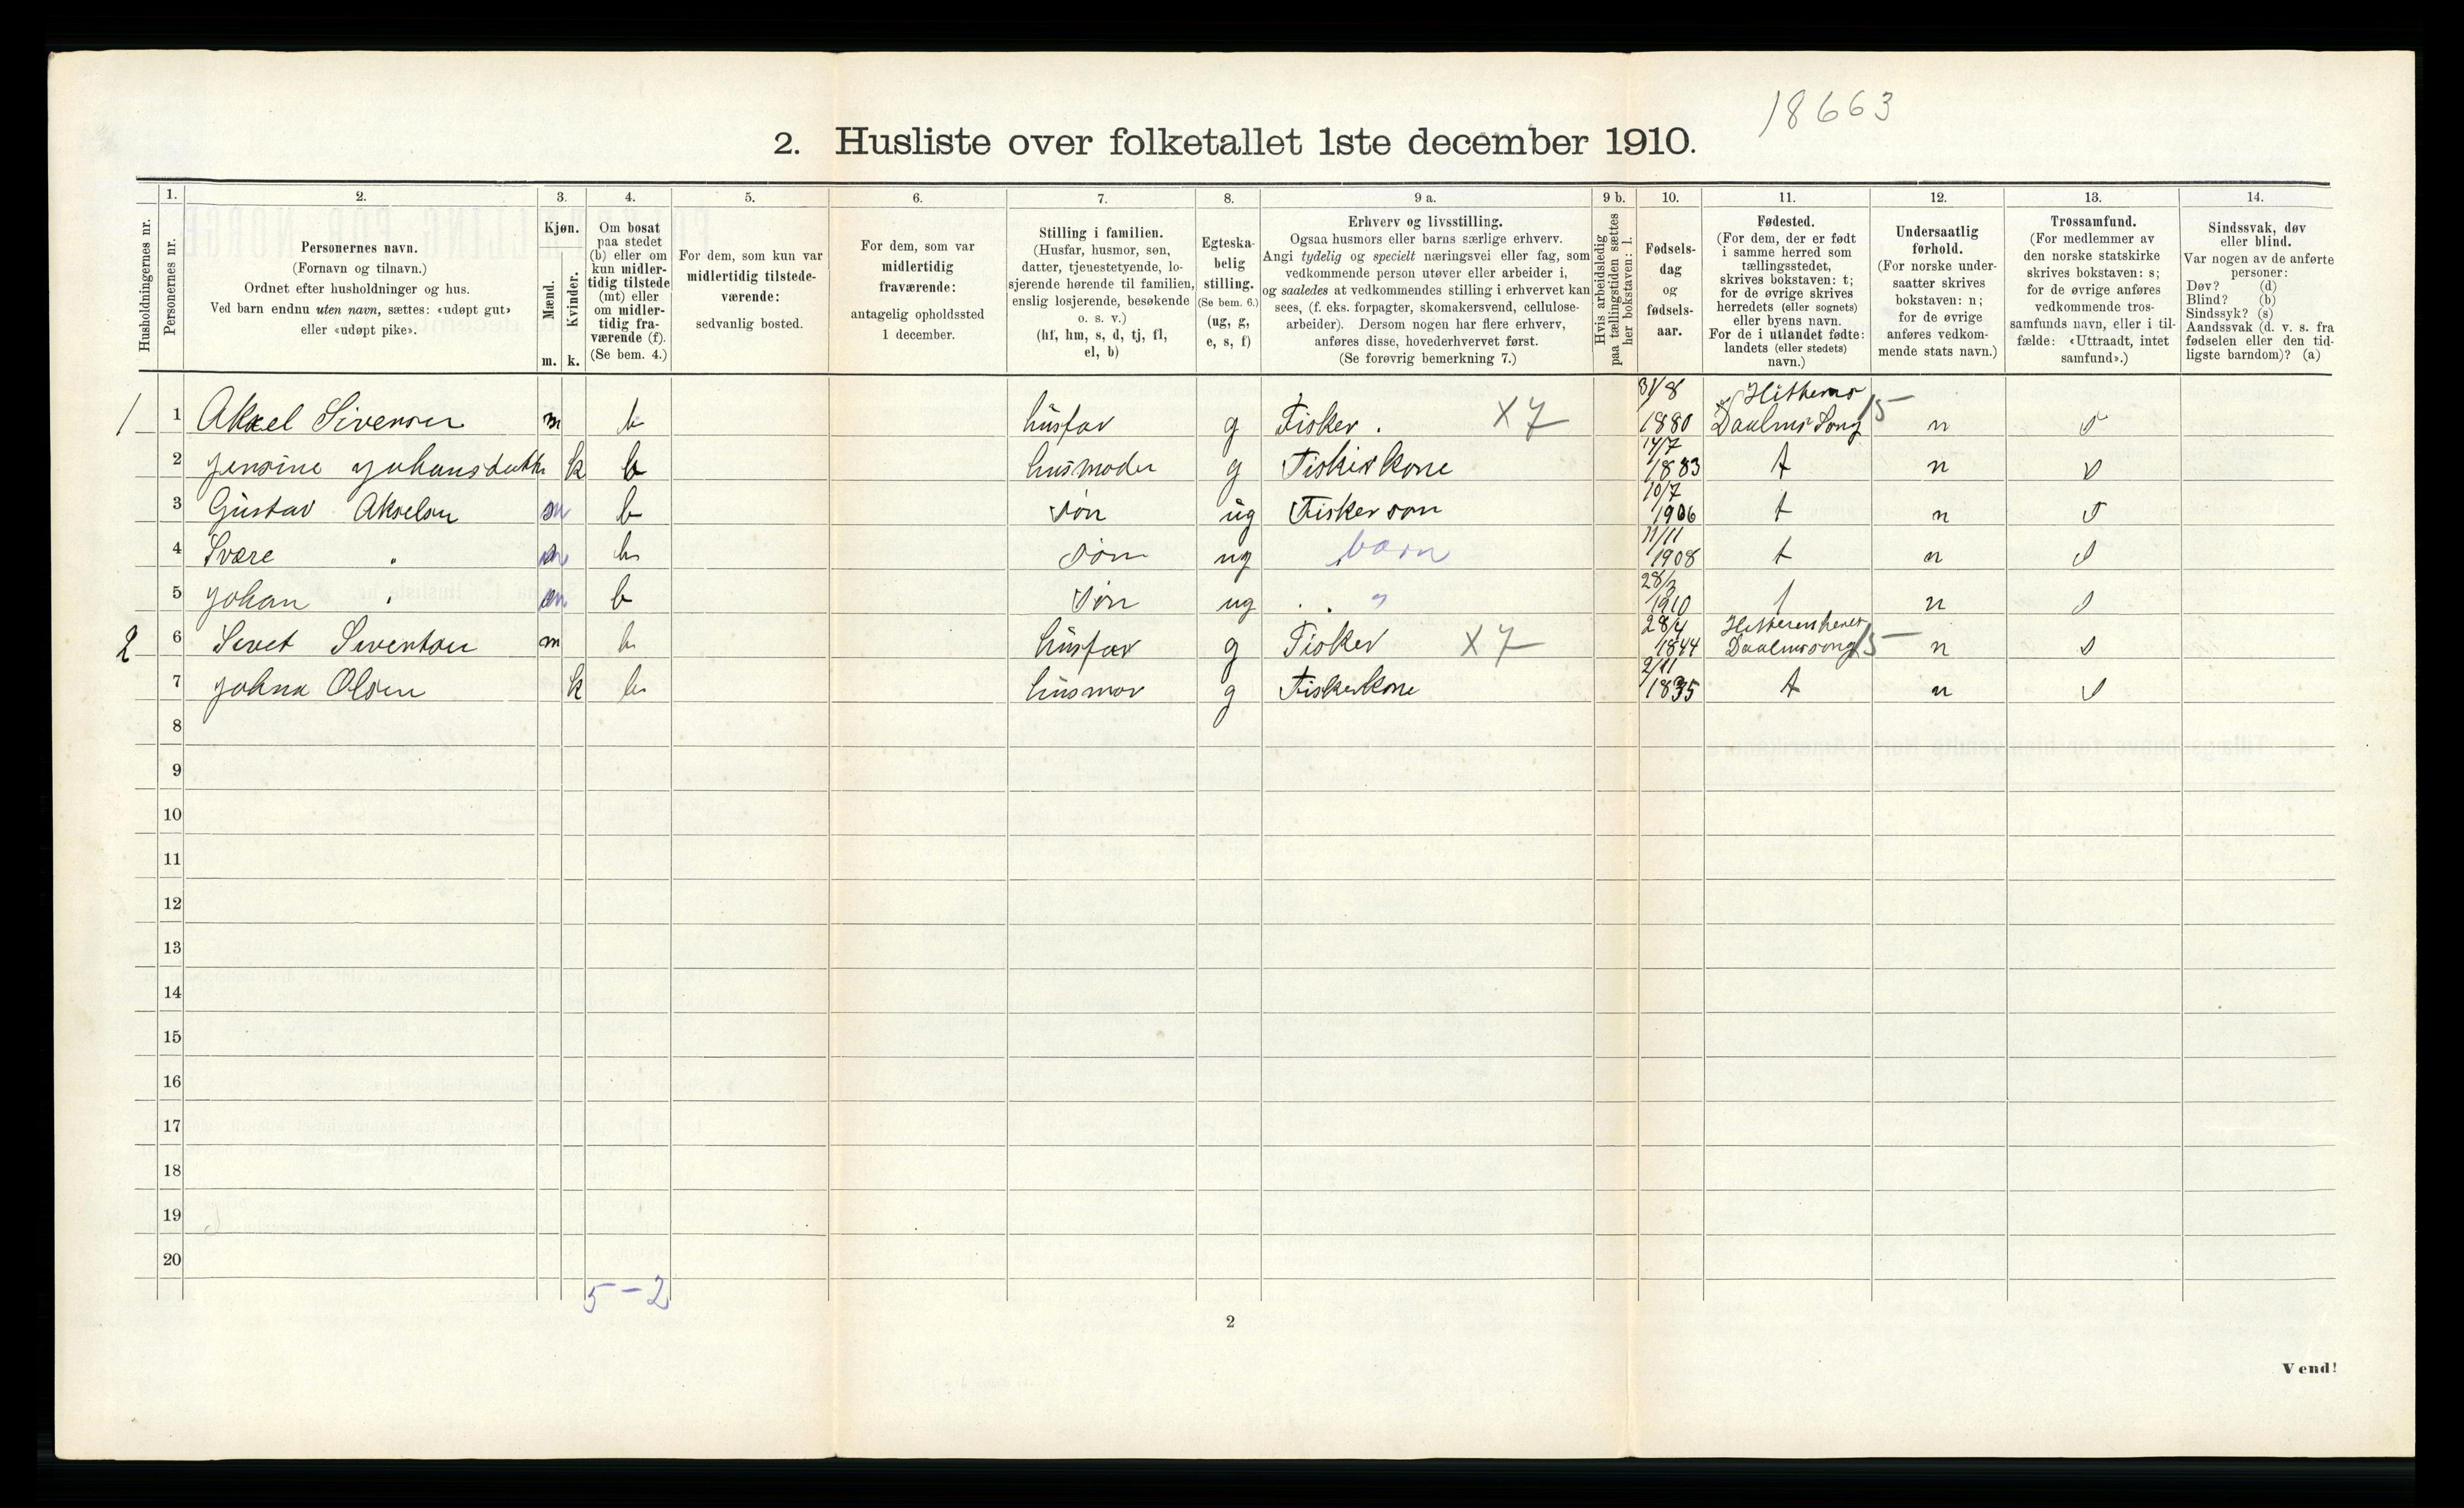 18663
2. Husliste over folketallet 1ste december 1910.
Husholdningernes nr.
1.
Personernes nr.
2.
Personernes navn.
(Fornavn og tilnavn.)
Ordnet efter husholdninger og hus.
Ved barn endnu uten navn, sættes: «udøpt gut»
eller «udøpt pike».
3.
Kjøn.
Mænd.
Kvinder.
m. k.
4.
Om bosat
paa stedet
(b) eller om
kun midler-
tidig tilstede
(mt) eller
om midler-
tidig fra-
værende (f).
(Se bem. 4.)
5.
For dem, som kun var
midlertidig tilstede-
værende:
sedvanlig bosted.
6.
For dem, som var
midlertidig
fraværende:
antagelig opholdssted
1 december.
7.
Stilling i familien.
(Husfar, husmor, søn,
datter, tjenestetyende, lo-
sjerende hørende til familien,
enslig losjerende, besøkende
o. s. v.)
(hf, hm, s, d, tj, fl,
el, b)
8.
Egteska-
belig
stilling.
(Se bem. 6.)
(ug, g,
e, s, f)
9 a.
Erhverv og livsstilling.
Ogsaa husmors eller barns særlige erhverv.
Angi tydelig og specielt næringsvei eller fag, som
vedkommende person utøver eller arbeider i,
og saaledes at vedkommendes stilling i erhvervet kan
sees, (f. eks. forpagter, skomakersvend, cellulose-
arbeider). Dersom nogen har flere erhverv,
anføres disse, hovederhvervet først.
(Se forøvrig bemerkning 7.)
9 b.
Hvis arbeidsledig
paa tællingstiden sættes
her bokstaven: l.
10.
Fødsels-
dag
og
fødsels-
aar.
11.
Fødested.
(For dem, der er født
i samme herred som
tællingsstedet,
skrives bokstaven: t;
for de øvrige skrives
herredets (eller sognets)
eller byens navn.
For de i utlandet fødte:
landets (eller stedets)
navn.)
12.
Undersaatlig
forhold.
(For norske under-
saatter skrives
bokstaven: n;
for de øvrige
anføres vedkom-
mende stats navn.)
13.
Trossamfund.
(For medlemmer av
den norske statskirke
skrives bokstaven: s;
for de øvrige anføres
vedkommende tros-
samfunds navn, eller i til-
fælde: «Uttraadt, intet
samfund».)
14.
Sindssvak, døv
eller blind.
Var nogen av de anførte
personer:
Døv? (d)
Blind? (b)
Sindssyk? (s)
Aandssvak (d. v. s. fra
fødselen eller den tid-
ligste barndom)? (a)
1 1 Aksel Sivensen m b husfar g Fisker. X7 31/8 1880 15 n s
2 Jensine Johansdatter k b husmoder g Fiskerkone 14/7 1883 t n s
3 Gustav Akselsen m b søn ug Fisker søn 10/7 1906 t n s
4 Svære " m b søn ug barn 11/11 1908 t n s
5 Johan " m b søn ug " " 28/3 1910 t n s
2 6 Sivert Siventsen m b husfar g Fisker X7 28/4 1844 15 n s
7 Johna Olsen k b husmor g Fiskerkone 2/11 1835 t n s
8
9
10
11
12
13
14
15
16
17
18
19
20
5-2
2
Vend!